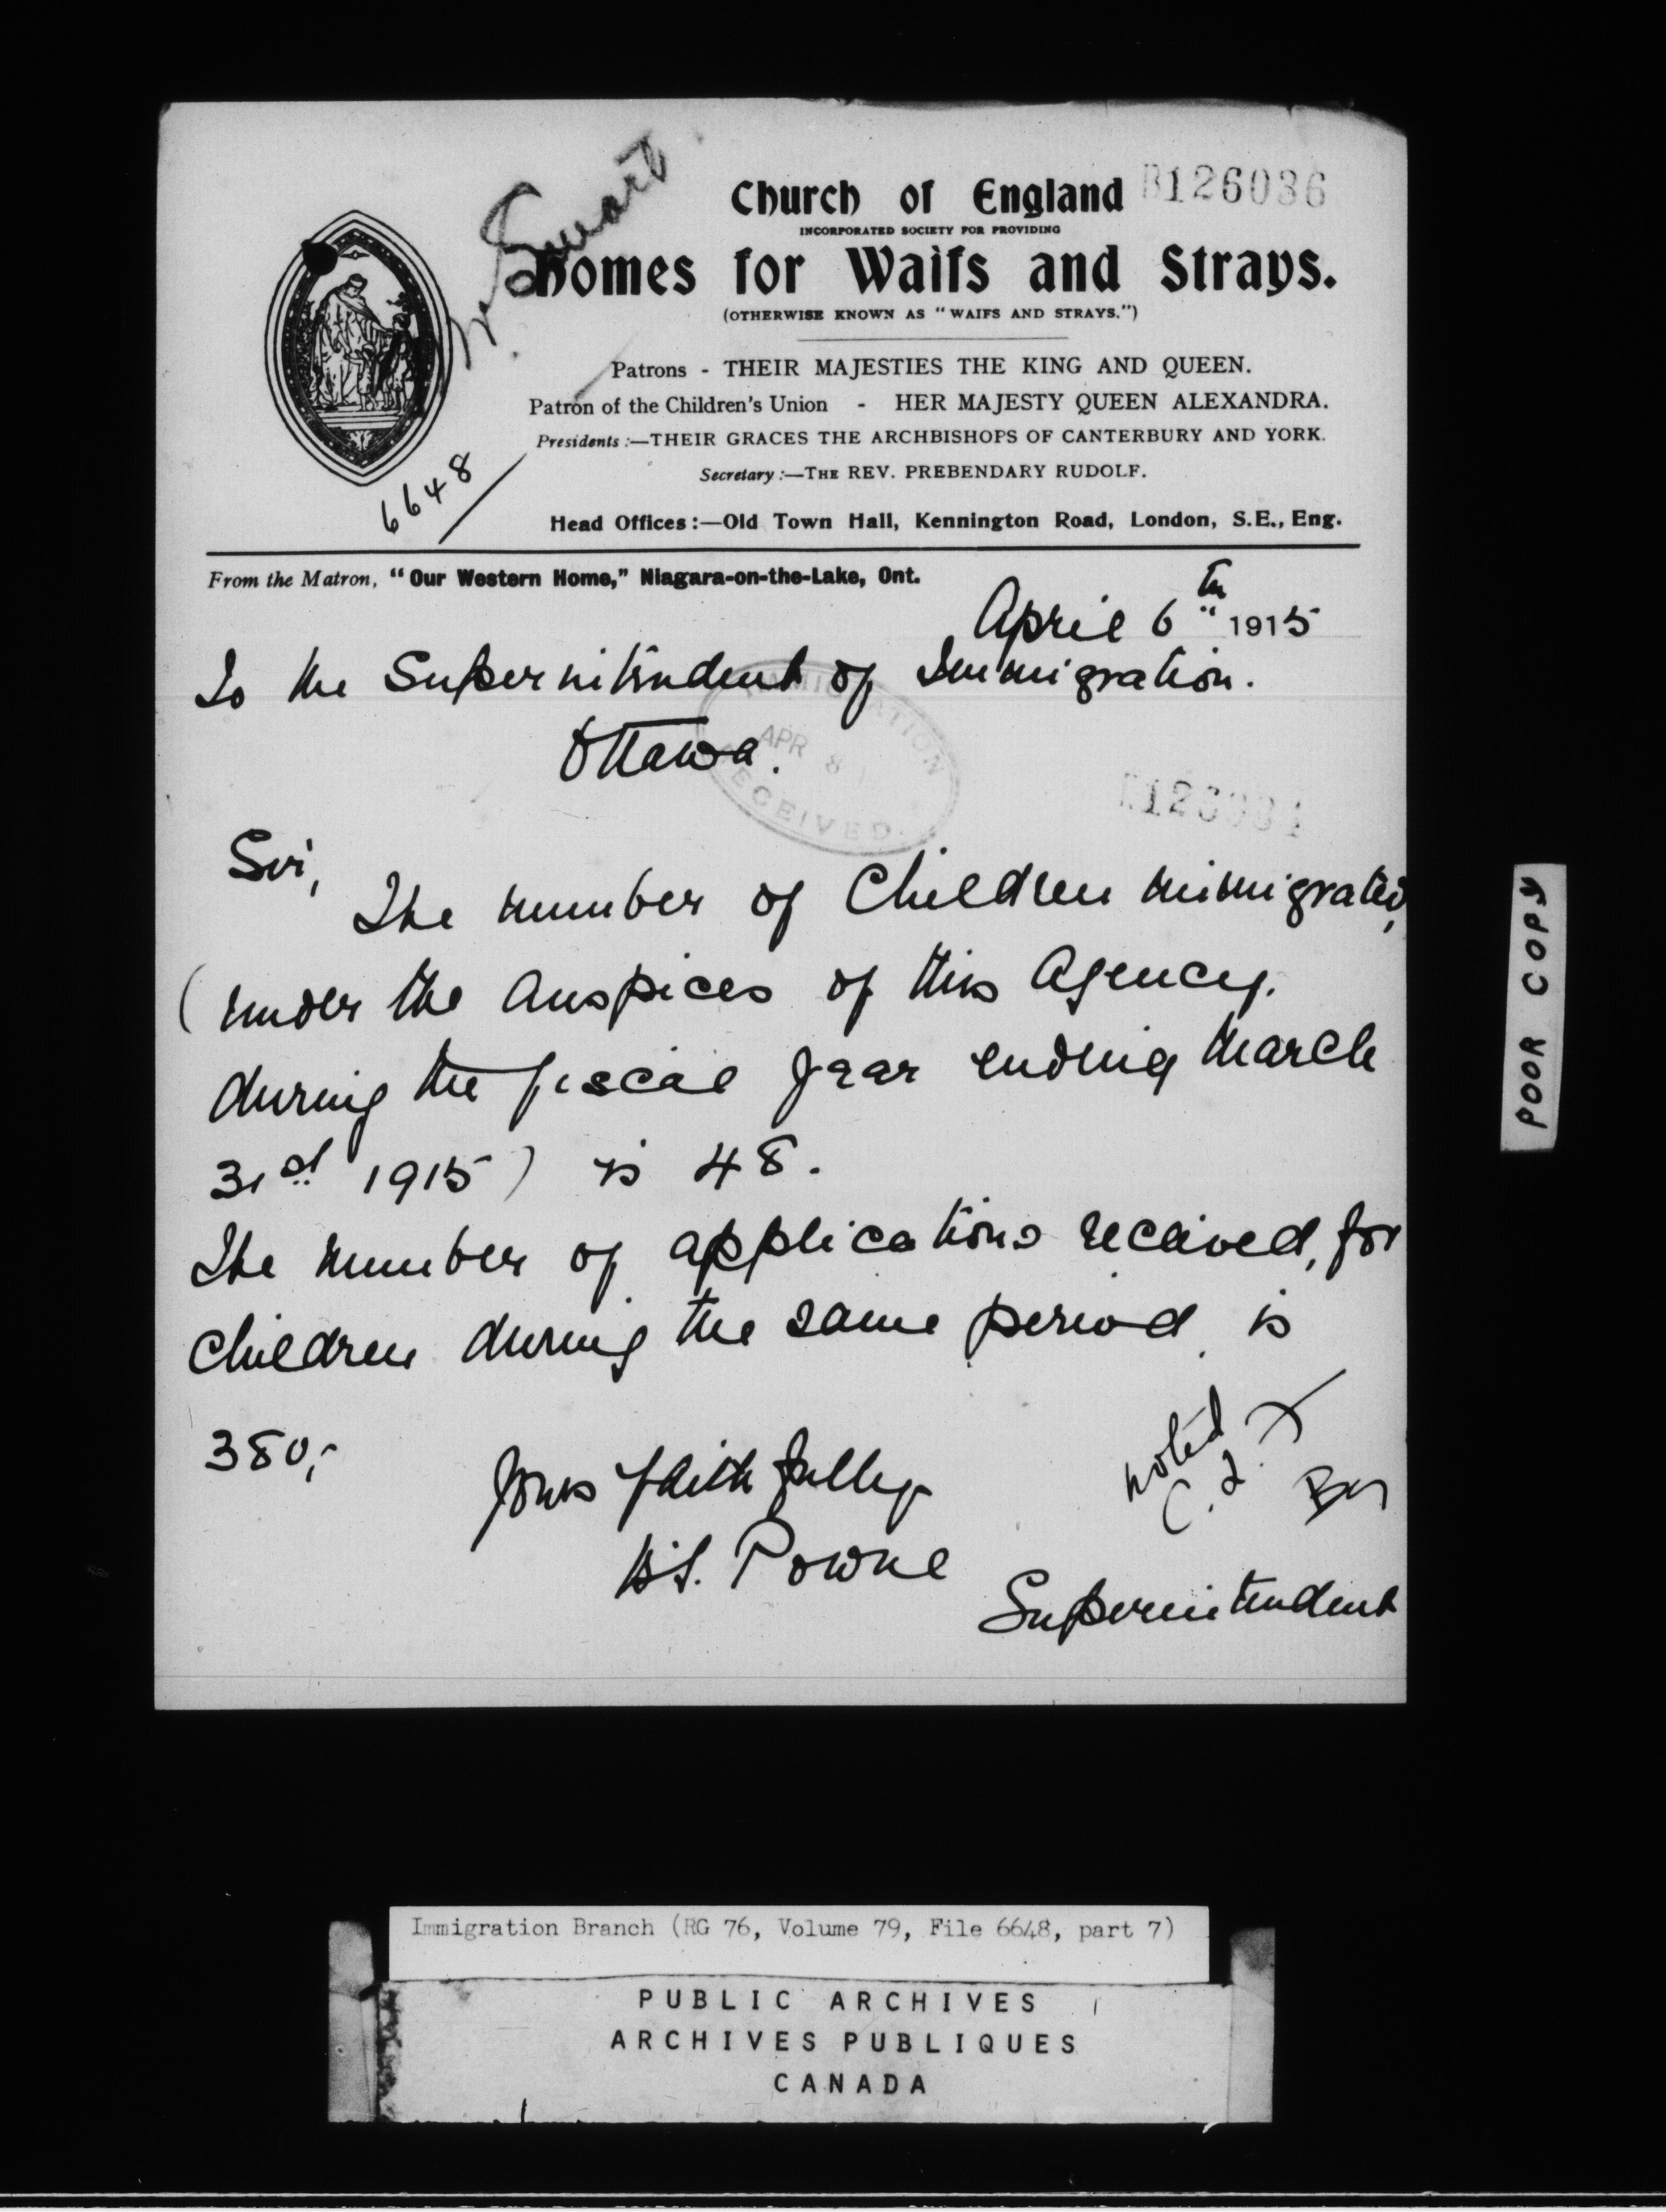 Mr Smart
Church of England
B126036
INCORPORATED SOCIETY FOR PROVIDING
Homes for Waifs and Strays.
(OTHERWISE KNOWN AS "WAIFS AND STRAYS.")
Patrons - THEIR MAJESTIES THE KING AND QUEEN.
Patron of the Children's Union - HER MAJESTY QUEEN ALEXANDRA.
Presidents:—THEIR GRACES THE ARCHBISHOPS OF CANTERBURY AND YORK.
Secretary:—THE REV. PREBENDARY RUDOLF.
6648
Head Offices:—Old Town Hall, Kennington Road, London, S.E., Eng.
From the Matron, "Our Western Home," Niagara-on-the-Lake, Ont.
April 6th 1915
To the Superintendent of Immigration.
Ottawa.
IMMIGRATION
APR 8
RECEIVED
Sir,
The number of Children immigrated,
(under the Auspices of this Agency.
during the fiscal year ending March
31st 1915) is 48.
The number of applications received, for
Children during the same period is
380,-
Yours faithfully
noted
Powne
Superintendent
POOR COPY
Immigration Branch (RG 76, Volume 79, File 6648, part 7)
PUBLIC ARCHIVES
ARCHIVES PUBLIQUES
CANADA